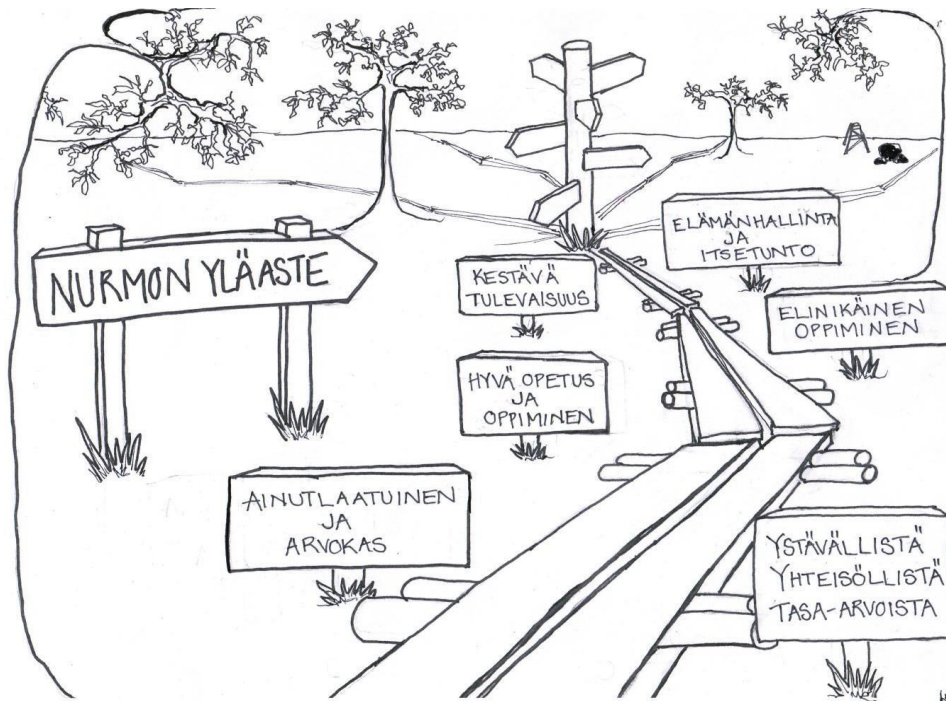 NURMON YLÄASTE
KESTÄVÄ
TULEVAISUUS
ELÄMÄNHALLINTA
JA
ITSETUNTO
ELINIKÄINEN
OPPIMINEN
HYVÄ OPETUS
JA
OPPIMINEN
AINUTLAATUINEN
JA
ARVOKAS
YSTÄVÄLLISTÄ
YHTEISÖLLISTÄ
TASA-ARVOISTA